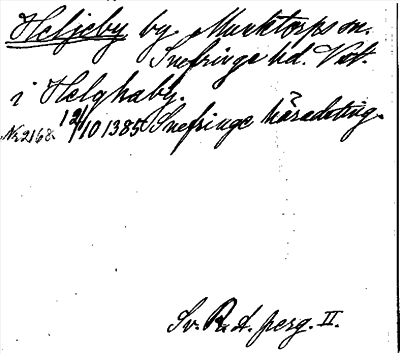 Heljeby by Marktorps sn.
Snefringe hd. Vstm.
i Helghaby.
Nr 2168. 12/10 1385 Snefringe häradsting.
Sv. R. A. perg. II.